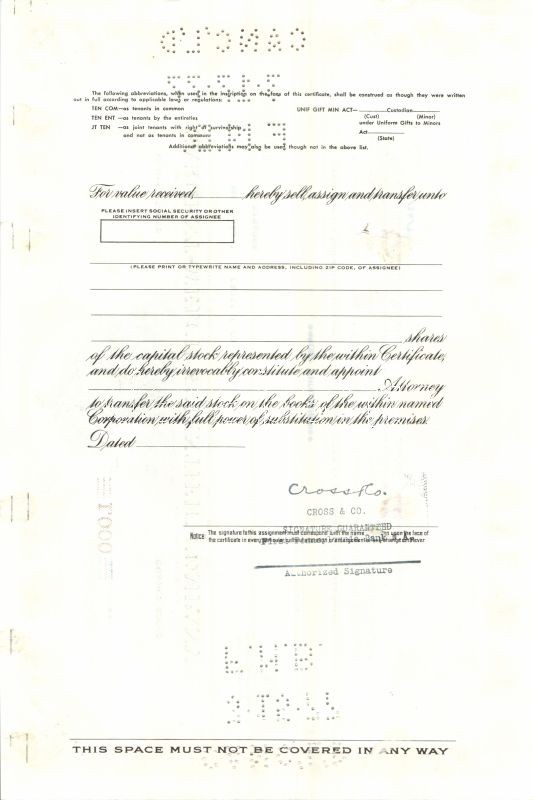 The following abbreviations, when used in the inscription on the face of this certificate, shall be construed as though they were written
out in full according to applicable laws or regulations:
TEN COM—as tenants in common
TEN ENT —as tenants by the entireties
JT TEN —as joint tenants with right of survivorship
and not as tenants in common
UNIF GIFT MIN ACT— Custodian
(Cust) (Minor)
under Uniform Gifts to Minors
Act
(State)
Additional abbreviations may also be used though not in the above list.
For value received, hereby sell, assign and transfer unto
PLEASE INSERT SOCIAL SECURITY OR OTHER
IDENTIFYING NUMBER OF ASSIGNEE
(PLEASE PRINT OR TYPEWRITE NAME AND ADDRESS, INCLUDING ZIP CODE, OF ASSIGNEE)
shares
of the capital stock represented by the within Certificate,
and do hereby irrevocably constitute and appoint
Attorney
to transfer the said stock on the books of the within named
Corporation with full power of substitution in the premises.
Dated
Cross & Co.
CROSS & CO.
SIGNATURE GUARANTEED
Notice: The signature to this assignment must correspond with the name upon the face of
the certificate in every
Authorized Signature
THIS SPACE MUST NOT BE COVERED IN ANY WAY